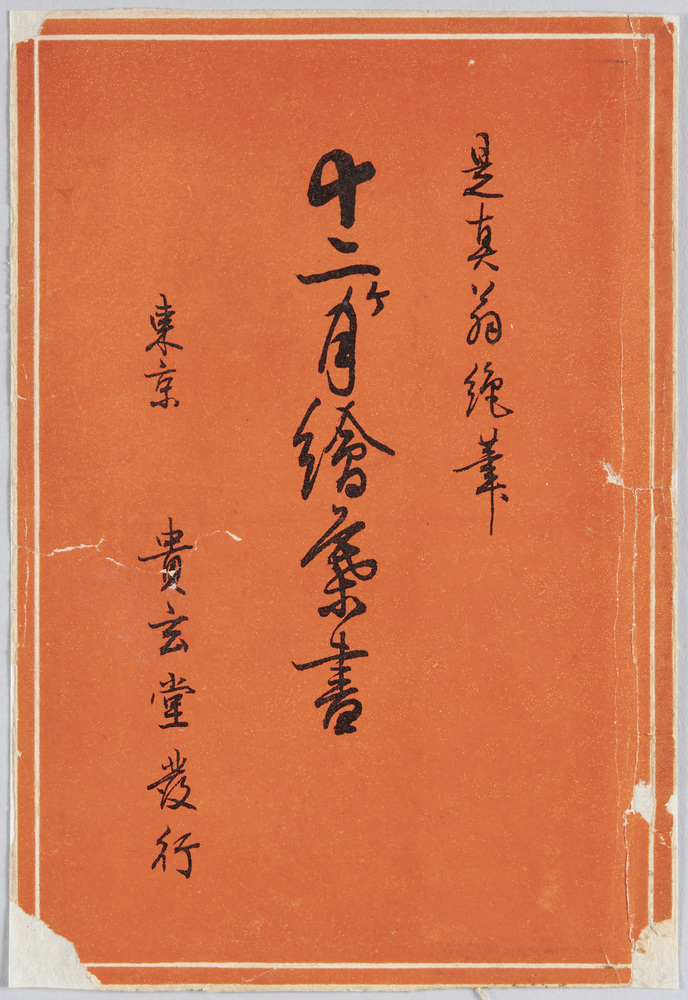 是真翁絶筆
十二ヶ月繪葉書
東京　貴玄堂發行